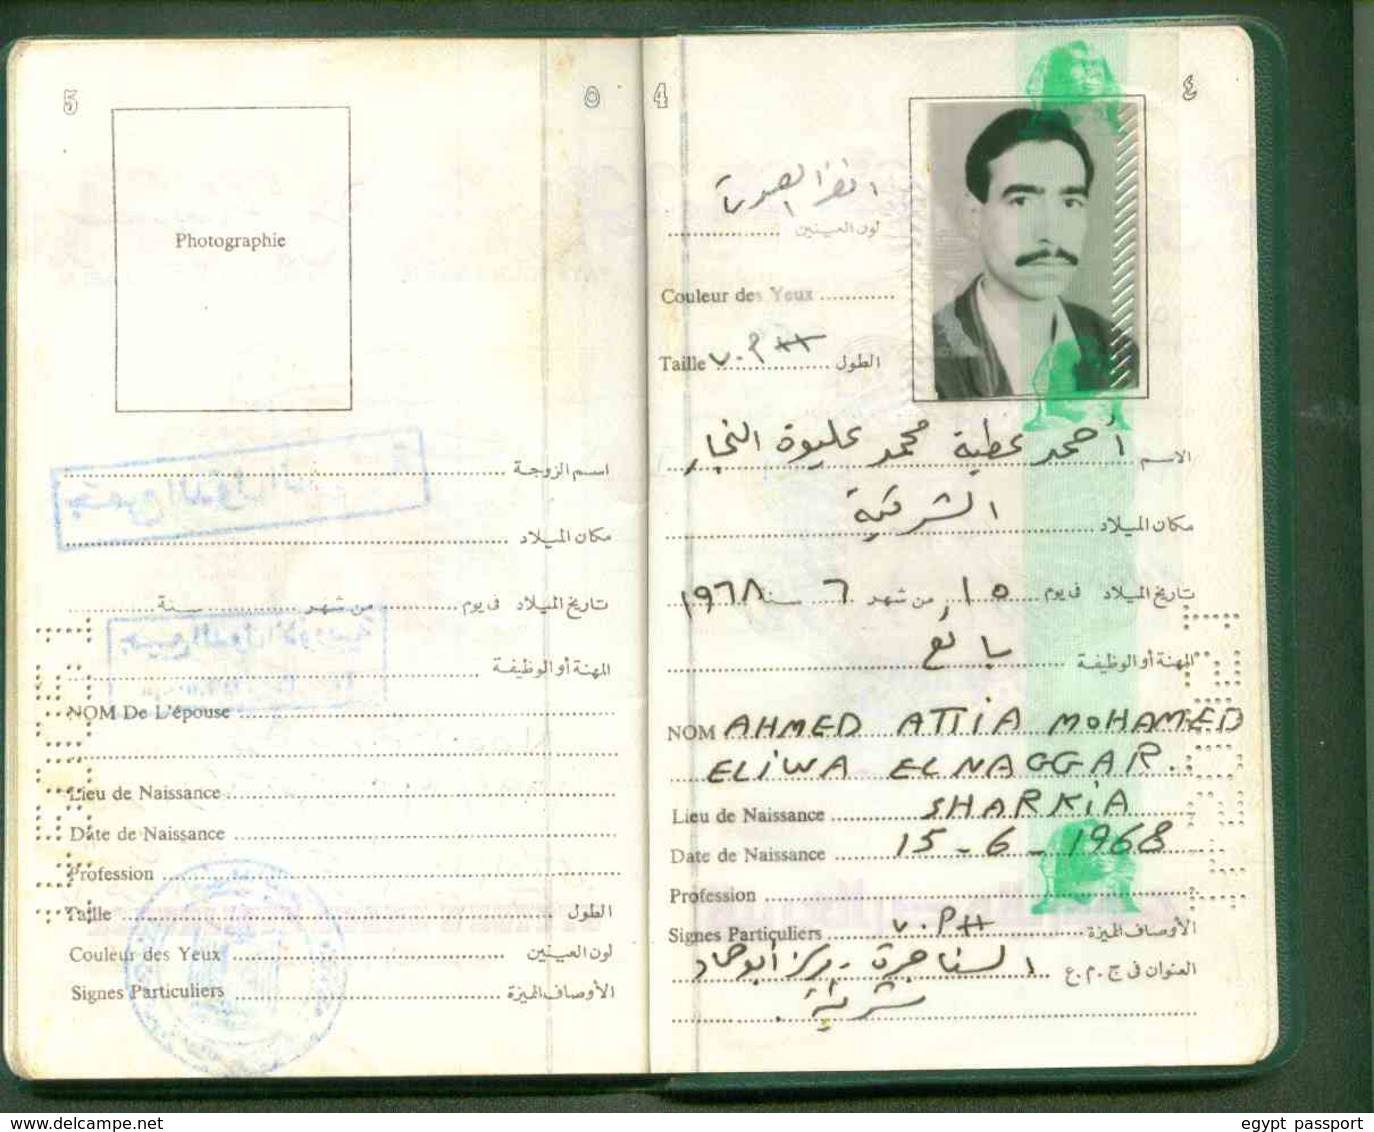 5
٥
Photographie
اسم الزوجة
مكان الميلاد
تاريخ الميلاد فى يوم من شهر سنة
المهنة أو الوظيفة
NOM De L'épouse
Lieu de Naissance
Date de Naissance
Profession
Taille الطول
Couleur des Yeux لون العينين
Signes Particuliers الأوصاف المميزة
4
٤
انظر الصورة
لون العينين
Couleur des Yeux
Taille V.P الطول
الاسم أحمد عطية محمد عليوة النجار
مكان الميلاد الشرقية
تاريخ الميلاد فى يوم ١٥ من شهر ٦ سنة ١٩٦٨
المهنة أو الوظيفة بائع
NOM AHMED ATTIA MOHAMED
ELIWA ELNAGGAR.
Lieu de Naissance SHARKIA
Date de Naissance 15-6-1968
Profession
Signes Particuliers V.P الأوصاف المميزة
العنوان فى ج.م.ع مركز أبوحماد
شرقية
www.delcampe.net
egypt passport